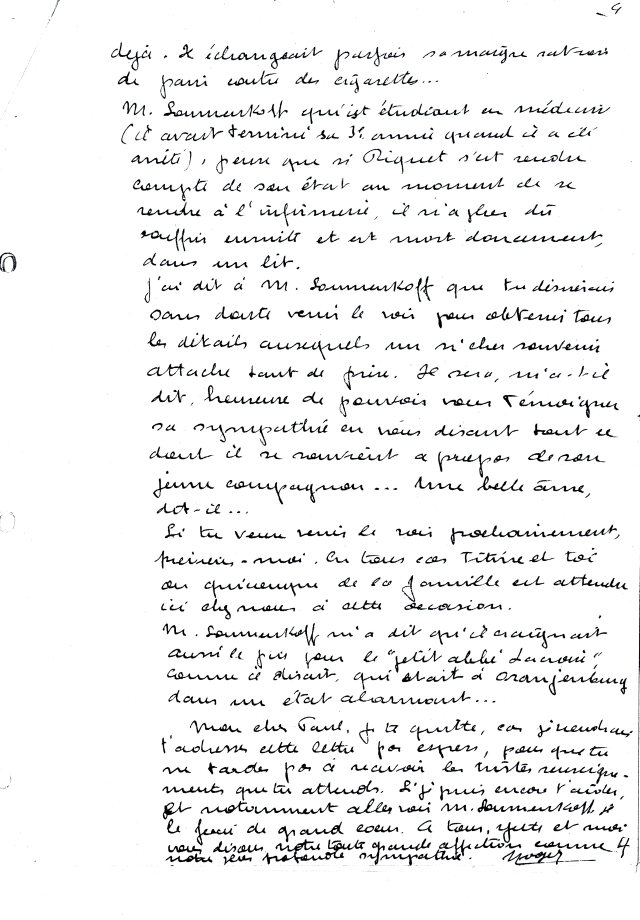 4
déjà. Il échangeait parfois sa maigre ration
de pain contre des cigarettes...
M. Sounenkoff qui est étudiant en médecine
(il avait terminé sa 3e année quand il a été
arrêté), pense que si Riquet s'est rendu
compte de son état au moment de se
rendre à l'infirmerie, il n'a plus dû
souffrir ensuite et est mort doucement,
dans un lit.
J'ai dit à M. Sounenkoff que tu désirerais
sans doute venir le voir pour obtenir tous
les détails auxquels un si cher souvenir
attache tant de prix. Je serai, m'a-t-il
dit, heureux de pouvoir vous témoigner
sa sympathie en vous disant tout ce
dont il se souvient à propos de son
jeune compagnon... Une belle âme,
dit-il...
Si tu veux venir le voir prochainement,
préviens-moi. En tous cas Titine et toi
ou quiconque de la famille est attendu
ici chez nous à cette occasion.
M. Sounenkoff m'a dit qu'il craignait
aussi le pis pour le "petit abbé Lacroix",
comme il disait, qui était à Oranjenburg
dans un état alarmant...
Mon cher Paul, je te quitte, car je voudrais
t'adresser cette lettre par express, pour que tu
ne tardes pas à recevoir les tristes renseigne-
ments que tu attends. Si je puis encore t'aider,
et notamment aller voir M. Sounenkoff, je
le ferai de grand coeur. A tous, et moi
vous disons notre toute grande affection comme
notre plus profonde sympathie. Roger